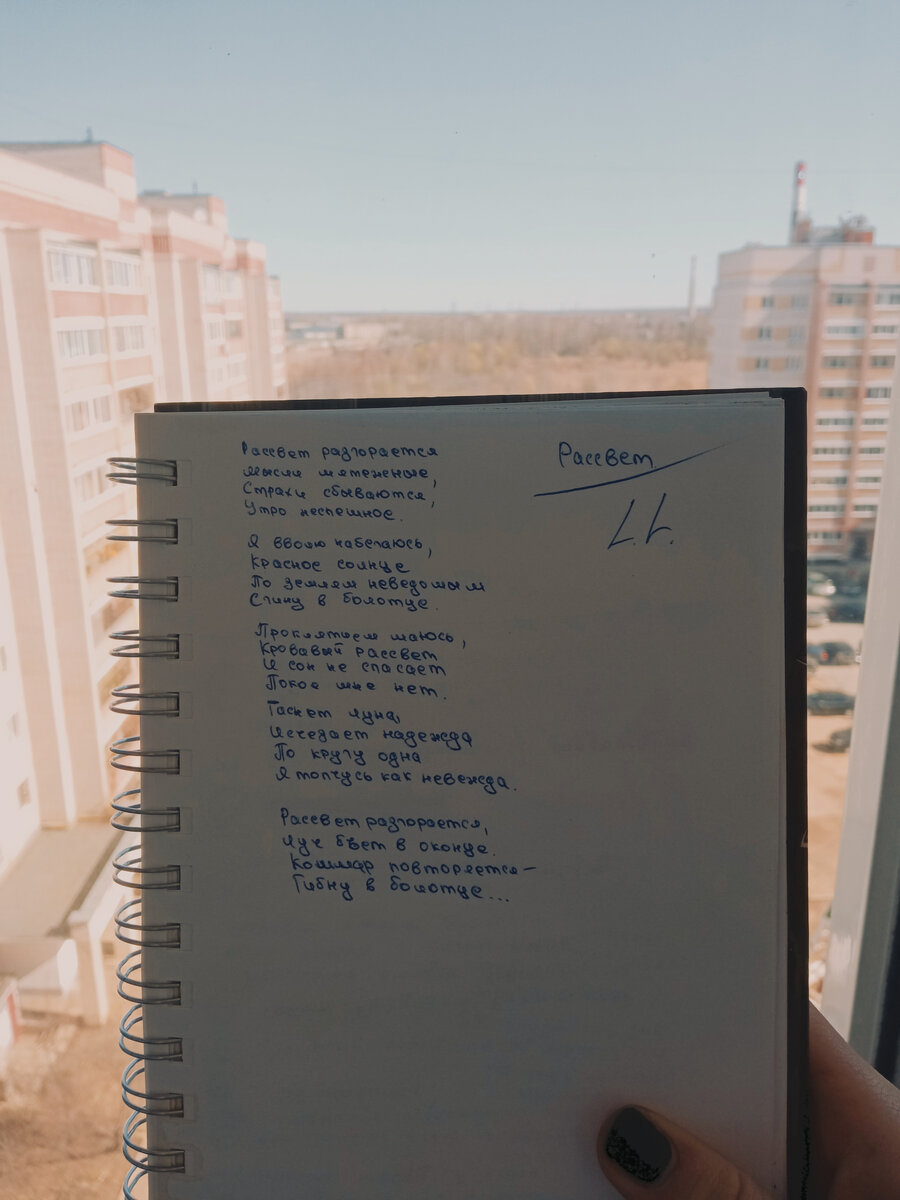 Рассвет
L.L.
Рассвет разгорается
Мысли мятежные,
Страхи сбываются,
Утро неспешное.
Я вволю набегаюсь,
Красное солнце
По землям неведомым
Сгину в болотце.
Проклятьем маюсь,
Кровавый рассвет
И сон не спасает
Покоя мне нет.
Гаснет луна,
Исчезает надежда
По кругу одна
Я топчусь как невежда.
Рассвет разгорается,
Луч бьет в оконце.
Кошмар повторяется –
Гибну в болотце...